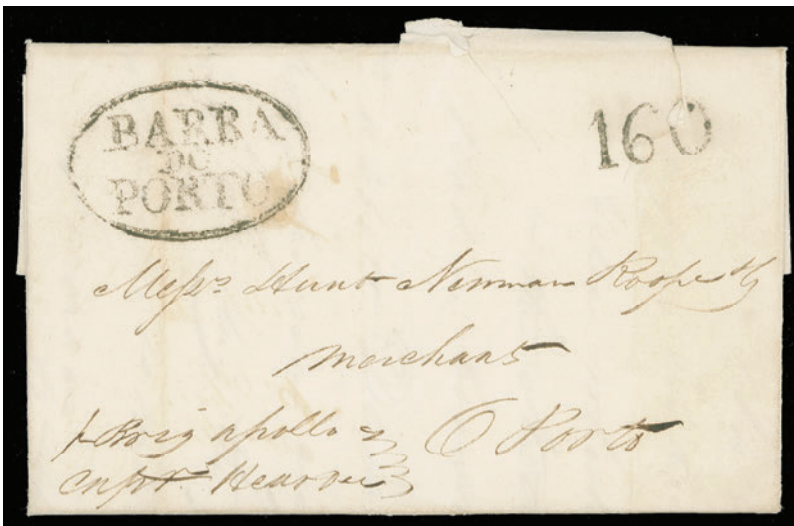 BARRA
DO
PORTO
160
Messrs Hunt Newman Roope &
Merchants
p Brig Apollo
Capt. 
O Porto